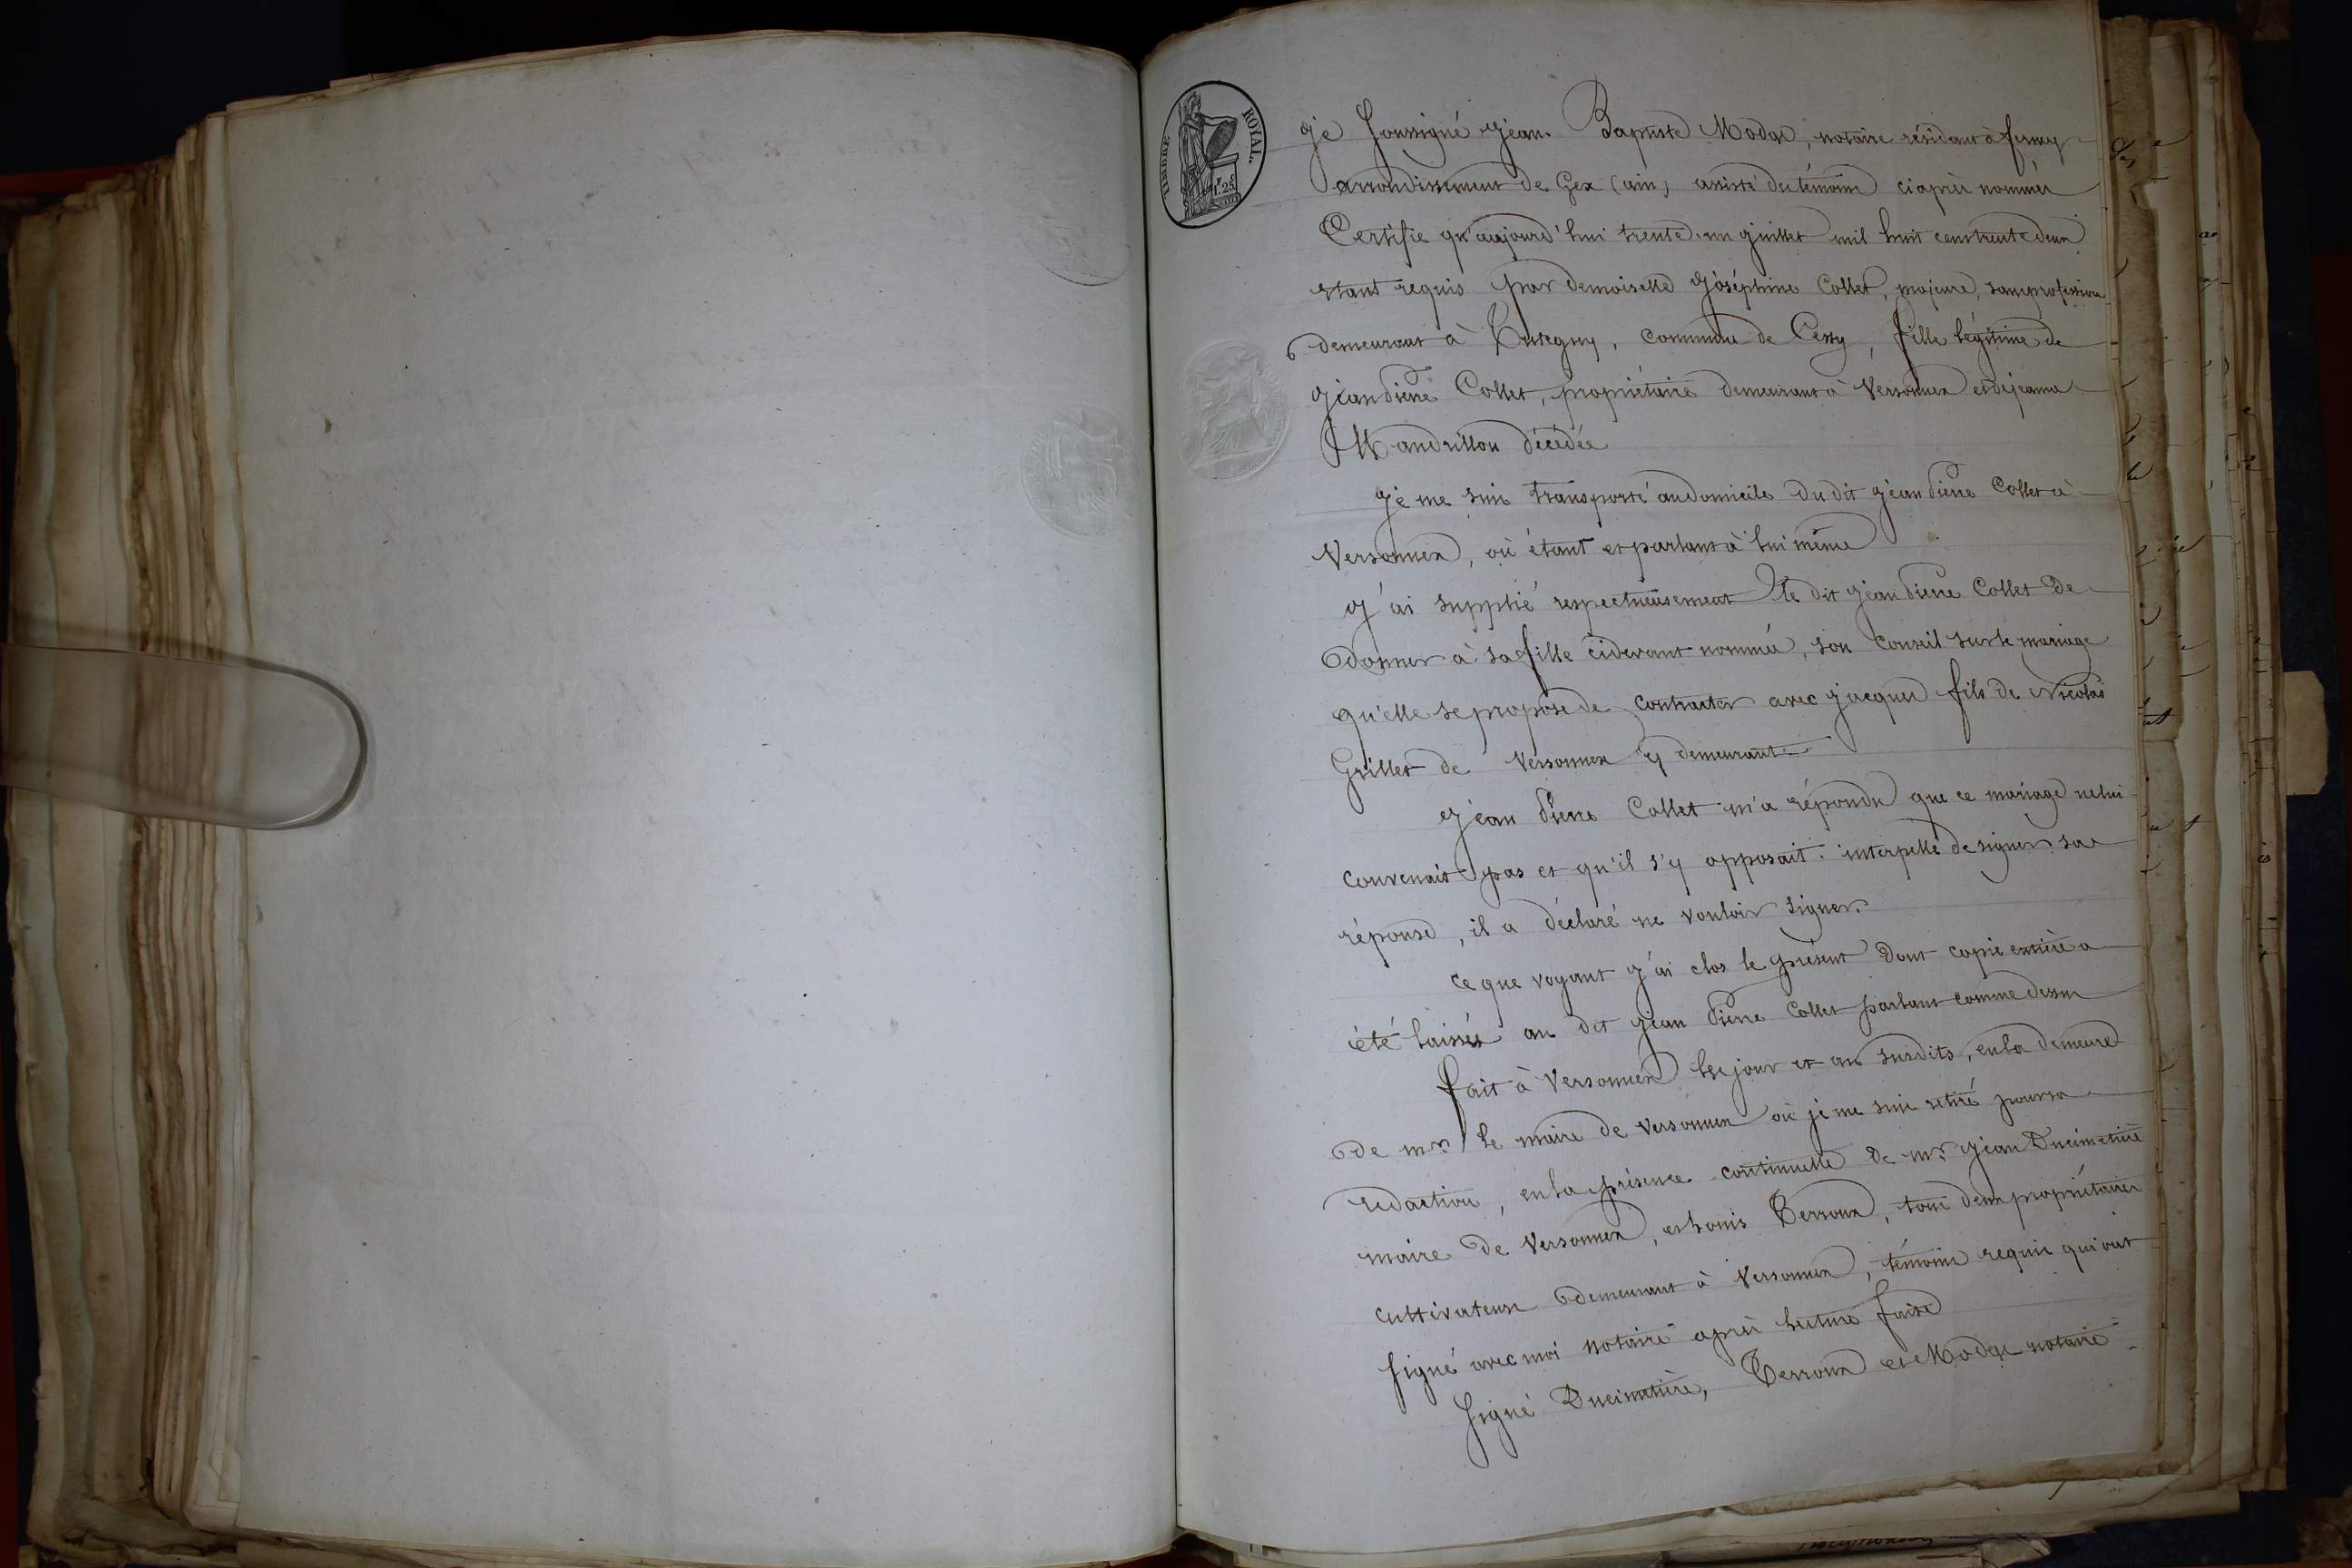 TIMBRE ROYAL.
1F. 25c
Je soussigné Jean Baptiste Modas, notaire résidant à ferney
arrondissement de Gex (ain) assisté des témoins ci après nommés
Certifie qu'aujourd'hui trente un juillet mil huit cent trente deux
étant requis par demoiselle Joséphine Collet, majeure, sans profession
demeurant à Tutegny, commune de Cessy, fille légitime de
Jean Pierre Collet, propriétaire demeurant à Versonnex et de jeanne
Mandrillon décédée
Je me suis transporté au domicile du dit jean Pierre Collet à
Versonnex, où étant et parlant à lui même
J'ai supplié respectueusement le dit jean Pierre Collet de
donner à sa fille cidevant nommée, son conseil sur le mariage
qu'elle se propose de contracter avec jacques fils de Nicolas
Grillet de Versonnex y demeurant
Jean Pierre Collet m'a répondu que ce mariage ne lui
convenait pas et qu'il s'y opposait. interpellé de signer sa
réponse, il a déclaré ne vouloir signer.
Ce que voyant j'ai clos le présent dont copie entière a
été laissée au dit jean Pierre Collet parlant comme dessus
fait à Versonnex les jour et an susdits, en la demeure
de mr. le maire de Versonnex où je me suis retiré pour sa
redaction, en la présence continuelle de mr. jean Ducimetière
maire de Versonnex, et Louis Terroux, tous deux propriétaires
cultivateurs demeurant à Versonnex, témoins requis qui ont
signé avec moi notaire après lecture faite
Signé Ducimetière, Terroux et Modas notaire